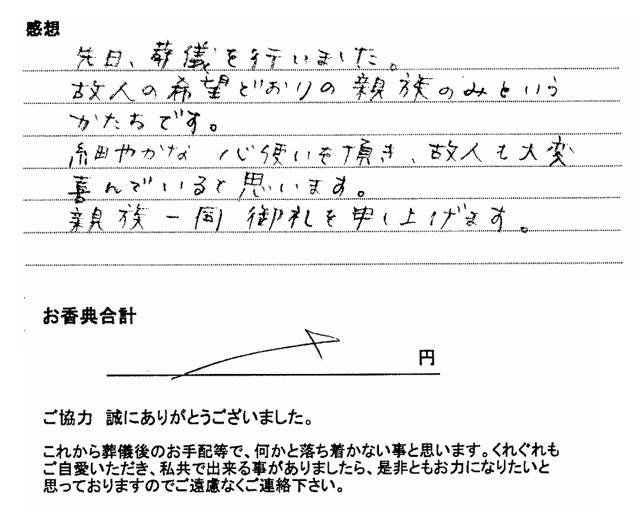 感想
先日、葬儀を行いました。
故人の希望どおりの親族のみという
かたちです。
細やかな心使いを頂き、故人も大変
喜んでいると思います。
親族一同御礼を申し上げます。
お香典合計
円
ご協力 誠にありがとうございました。
これから葬儀後のお手配等で、何かと落ち着かない事と思います。くれぐれも
ご自愛いただき、私共で出来る事がありましたら、是非ともお力になりたいと
思っておりますのでご遠慮なくご連絡下さい。